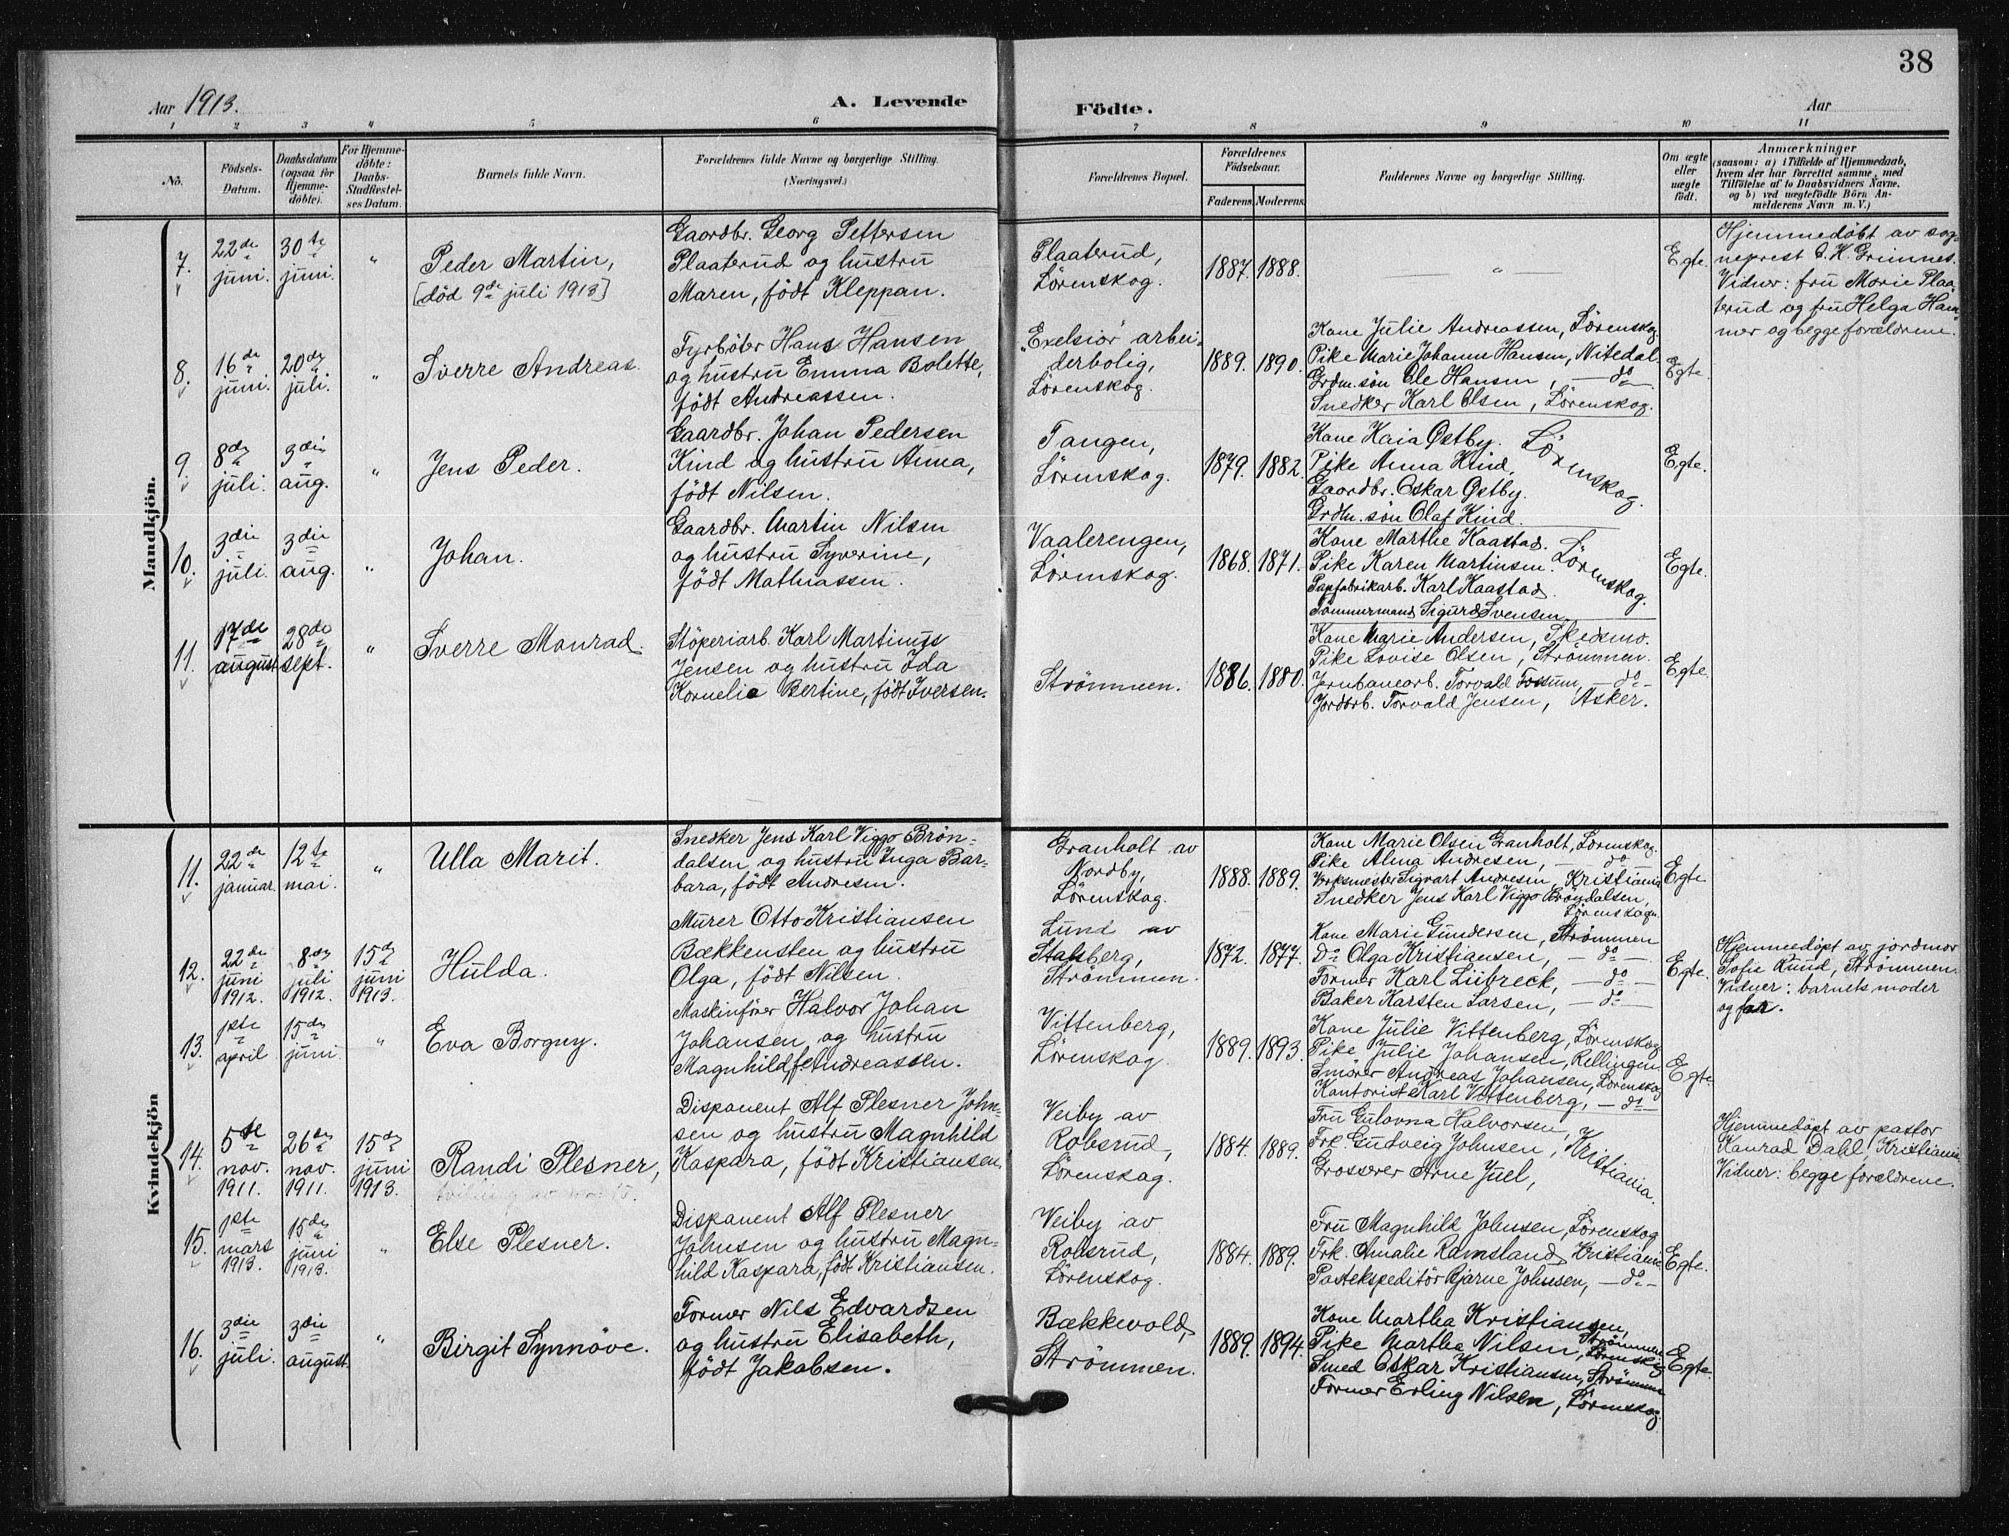 38
Aar 1913.
A. Levende
Födte.
Aar
1 2 3 4 5 6 7 8 9 10 11
No.
Födsels-
Datum.
Daabsdatum
(ogsaa for
Hjemme-
döbte).
For Hjemme-
döbte:
Daabs-
Stadfæstel-
ses Datum.
Barnets fulde Navn.
Forældrenes fulde Navne og borgerlige Stilling.
(Næringsvei.)
Forældrenes Bopæl.
Forældrenes
Födselsaar.
Faderens.
Moderens.
Faddernes Navne og borgerlige Stilling.
Om ægte
eller
uægte
födt.
Anmærkninger
(saasom: a) i Tilfælde af Hjemmedaab,
hvem der har forrettet samme, med
Tilföielse af to Daabsvidners Navne,
og b) ved uægtefödte Börn An-
melderens Navn m. V.)
Mandkjön.
7.
22de
juni.
30te
juni.
"
Peder Martin,
[död 9de juli 1913]
Gaardbr. Georg Pettersen
Plaaterud og hustru
Maren, födt Kleppan.
Plaaterud,
Lörenskog.
1887. 1888.
"
Egte.
Hjemmedöbt av sog-
neprest O. K. Grimnes.
Vidner: fru Marie Plaa-
terud og fru Helga Ham-
mer og begge forældrene.
8.
16de
juni.
20de
juli.
"
Sverre Andreas.
Fyrböter Hans Hansen
og hustru Emma Bolette,
födt Andreassen.
"Exelsiör" arbei-
derbolig,
Lörenskog.
1889. 1890.
Kone Julie Andreassen, Lörenskog
Pike Marie Johanne Hansen, Nitedal
Grdm.sön Ole Hansen, — do —
Snedker Karl Olsen, Lörenskog.
Egte.
9.
8de
juli.
3die
aug.
"
Jens Peder.
Gaardbr. Johan Pedersen
Kind og hustru Anna,
födt Nilsen.
Tangen,
Lörenskog.
1879. 1882.
Kone Kaia Østby.
Pike Anna Kind,
Gaardbr. Oskar Østby.
Grdm.sön Olaf Kind.
Lörenskog.
Egte.
10.
3die
juli.
3die
aug.
"
Johan.
Gaardbr. Martin Nilsen
og hustru Syverine,
födt Mathiassen.
Vaalerengen,
Lörenskog.
1868. 1871.
Kone Marthe Kaastad.
Pike Karen Martinsen.
Papfabrikarb. Karl Kaastad.
Tömmermand Sigurd Svensen.
Lörenskog.
Egte.
11.
17de
august.
28de
sept.
"
Sverre Monrad.
Stöperiarb. Karl Martinus
Jensen og hustru Ida
Kornelia Bertine, födt Iversen.
Strömmen.
1886. 1880.
Kone Marie Andersen, Skedsmo.
Pike Lovise Olsen, Strömmen.
Jernbanearb. Torvald Fossum, — do —
Jordbrb. Torvald Jensen, Asker.
Egte.
Kvindekjön
11.
22de
januar.
12te
mai.
"
Ulla Marit.
Snedker Jens Karl Viggo Brön-
dalsen og hustru Inga Bar-
bara, födt Andresen.
Granholt av
Nordby,
Lörenskog.
1888. 1889.
Kone Marie Olsen Granholt, Lörenskog.
Pike Alma Andresen, — do —
Verksmester Sigvart Andresen, Kristiania
Snedker Jens Karl Viggo Bröndalsen,
Lörenskog.
Egte
12.
22de
juni
1912.
8de
juli
1912.
15de
juni
1913.
Hulda.
Murer Otto Kristiansen
Bækkensten og hustru
Olga, födt Nilsen.
Lund av
Stalsberg,
Strömmen.
1872. 1877.
Kone Marie Gundersen, Strömmen
Do Olga Kristiansen, — do —
Former Karl Lübreck, — do —
Baker Karsten Larsen, — do —
Egte.
Hjemmedöpt av jordmor
Sofie Rund, Strömmen.
Vidner: barnets moder
og far.
13.
1ste
april
15de
juni
"
Eva Borgny.
Maskinförer Halvor Johan
Johansen og hustru
Magnhild, f. Andreassen.
Vittenberg,
Lörenskog.
1889. 1893.
Kone Julie Vittenberg, Lörenskog
Pike Julie Johansen, Rellingen
Smörer Andreas Johansen, Lörenskog
Kontorist Karl Vittenberg, — do —
Egte.
14.
5te
nov.
1911.
26de
nov.
1911.
15de
juni
1913.
Randi Plesner,
Disponent Alf Plesner John-
sen og hustru Magnhild
Kaspara, födt Kristiansen.
Veiby av
Robsrud,
Lörenskog.
1884. 1889.
Fru Gulovna Halvorsen,
Frk. Gudveig Johnsen,
Grosserer Arne Juel,
Kristiania.
Hjemmedöpt av pastor
Konrad Dahl, Kristiania.
Vidner: begge forældrene.
15.
1ste
mars
1913.
15de
juni
1913.
"
Else Plesner.
Disponent Alf Plesner
Johnsen og hustru Magn-
hild Kaspara, födt Kristiansen.
Veiby av
Robsrud,
Lörenskog.
1884. 1889.
Fru Magnhild Johnsen, Lörenskog
Frk. Amalie Ramsland, Kristiania
Postekspeditör Bjarne Johnsen, — do —
Egte.
16.
3die
juli.
3die
august.
"
Birgit Synnöve.
Former Nils Edvardsen
og hustru Elisabeth,
födt Jakobsen.
Bækkevold,
Strömmen.
1889. 1894.
Kone Martha Kristiansen,
Strömmen
Pike Martha Nilsen, Lörenskog
Smed Oskar Kristiansen, Strömmen
Former Erling Nilsen, Lörenskog.
Egte.